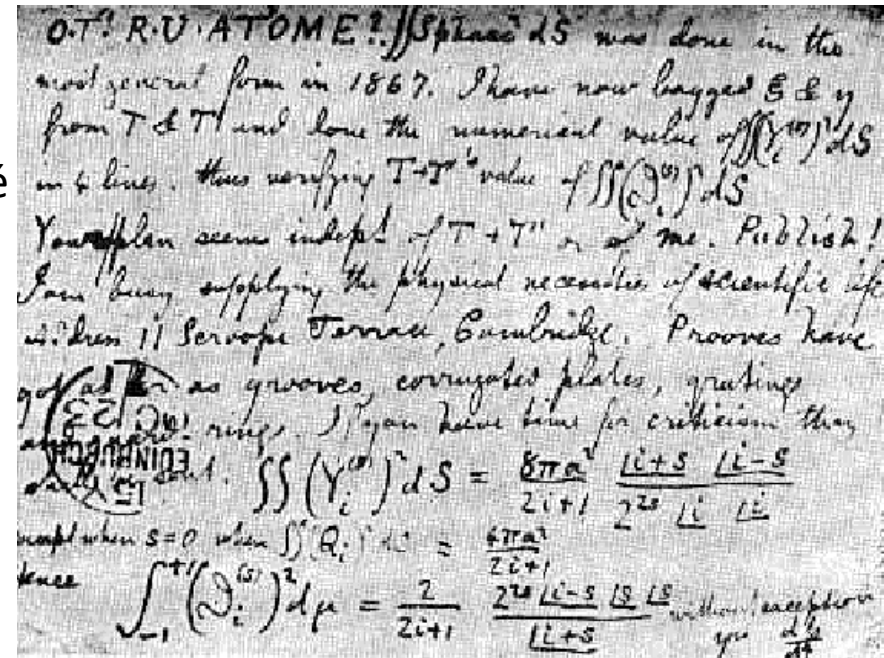 O.T! R.U. AT 'OME? ∬Spharc² dS was done in the
most general form in 1867. I have now bagged ξ & η
from T & T' and done the numerical value of ∬(Y_i^(s))² dS
in 4 lines. thus verifying T+T''s value of ∬(ϑ_i^(s))² dS
Your plan seems indept. of T + T' or of me. Publish!
I am busy supplying the physical necessities of scientific life
address 11 Scroope Terrace, Cambridge. Prooves have
got as far as grooves, corrugated plates, gratings
and guard rings. If you have time for criticism they
sent. ∬(Y_i^(s))² dS = 8πa²/(2i+1) |i+s |i-s / 2^2s |i |i
except when s=0 when ∬(Q_i)² dS = 4πa²/(2i+1)
hence ∫_-1^+1 (ϑ_i^(s))² dμ = 2/(2i+1) 2^2s |i-s |s |s / |i+s without exception
yrs dp/dt
EDINBURGH